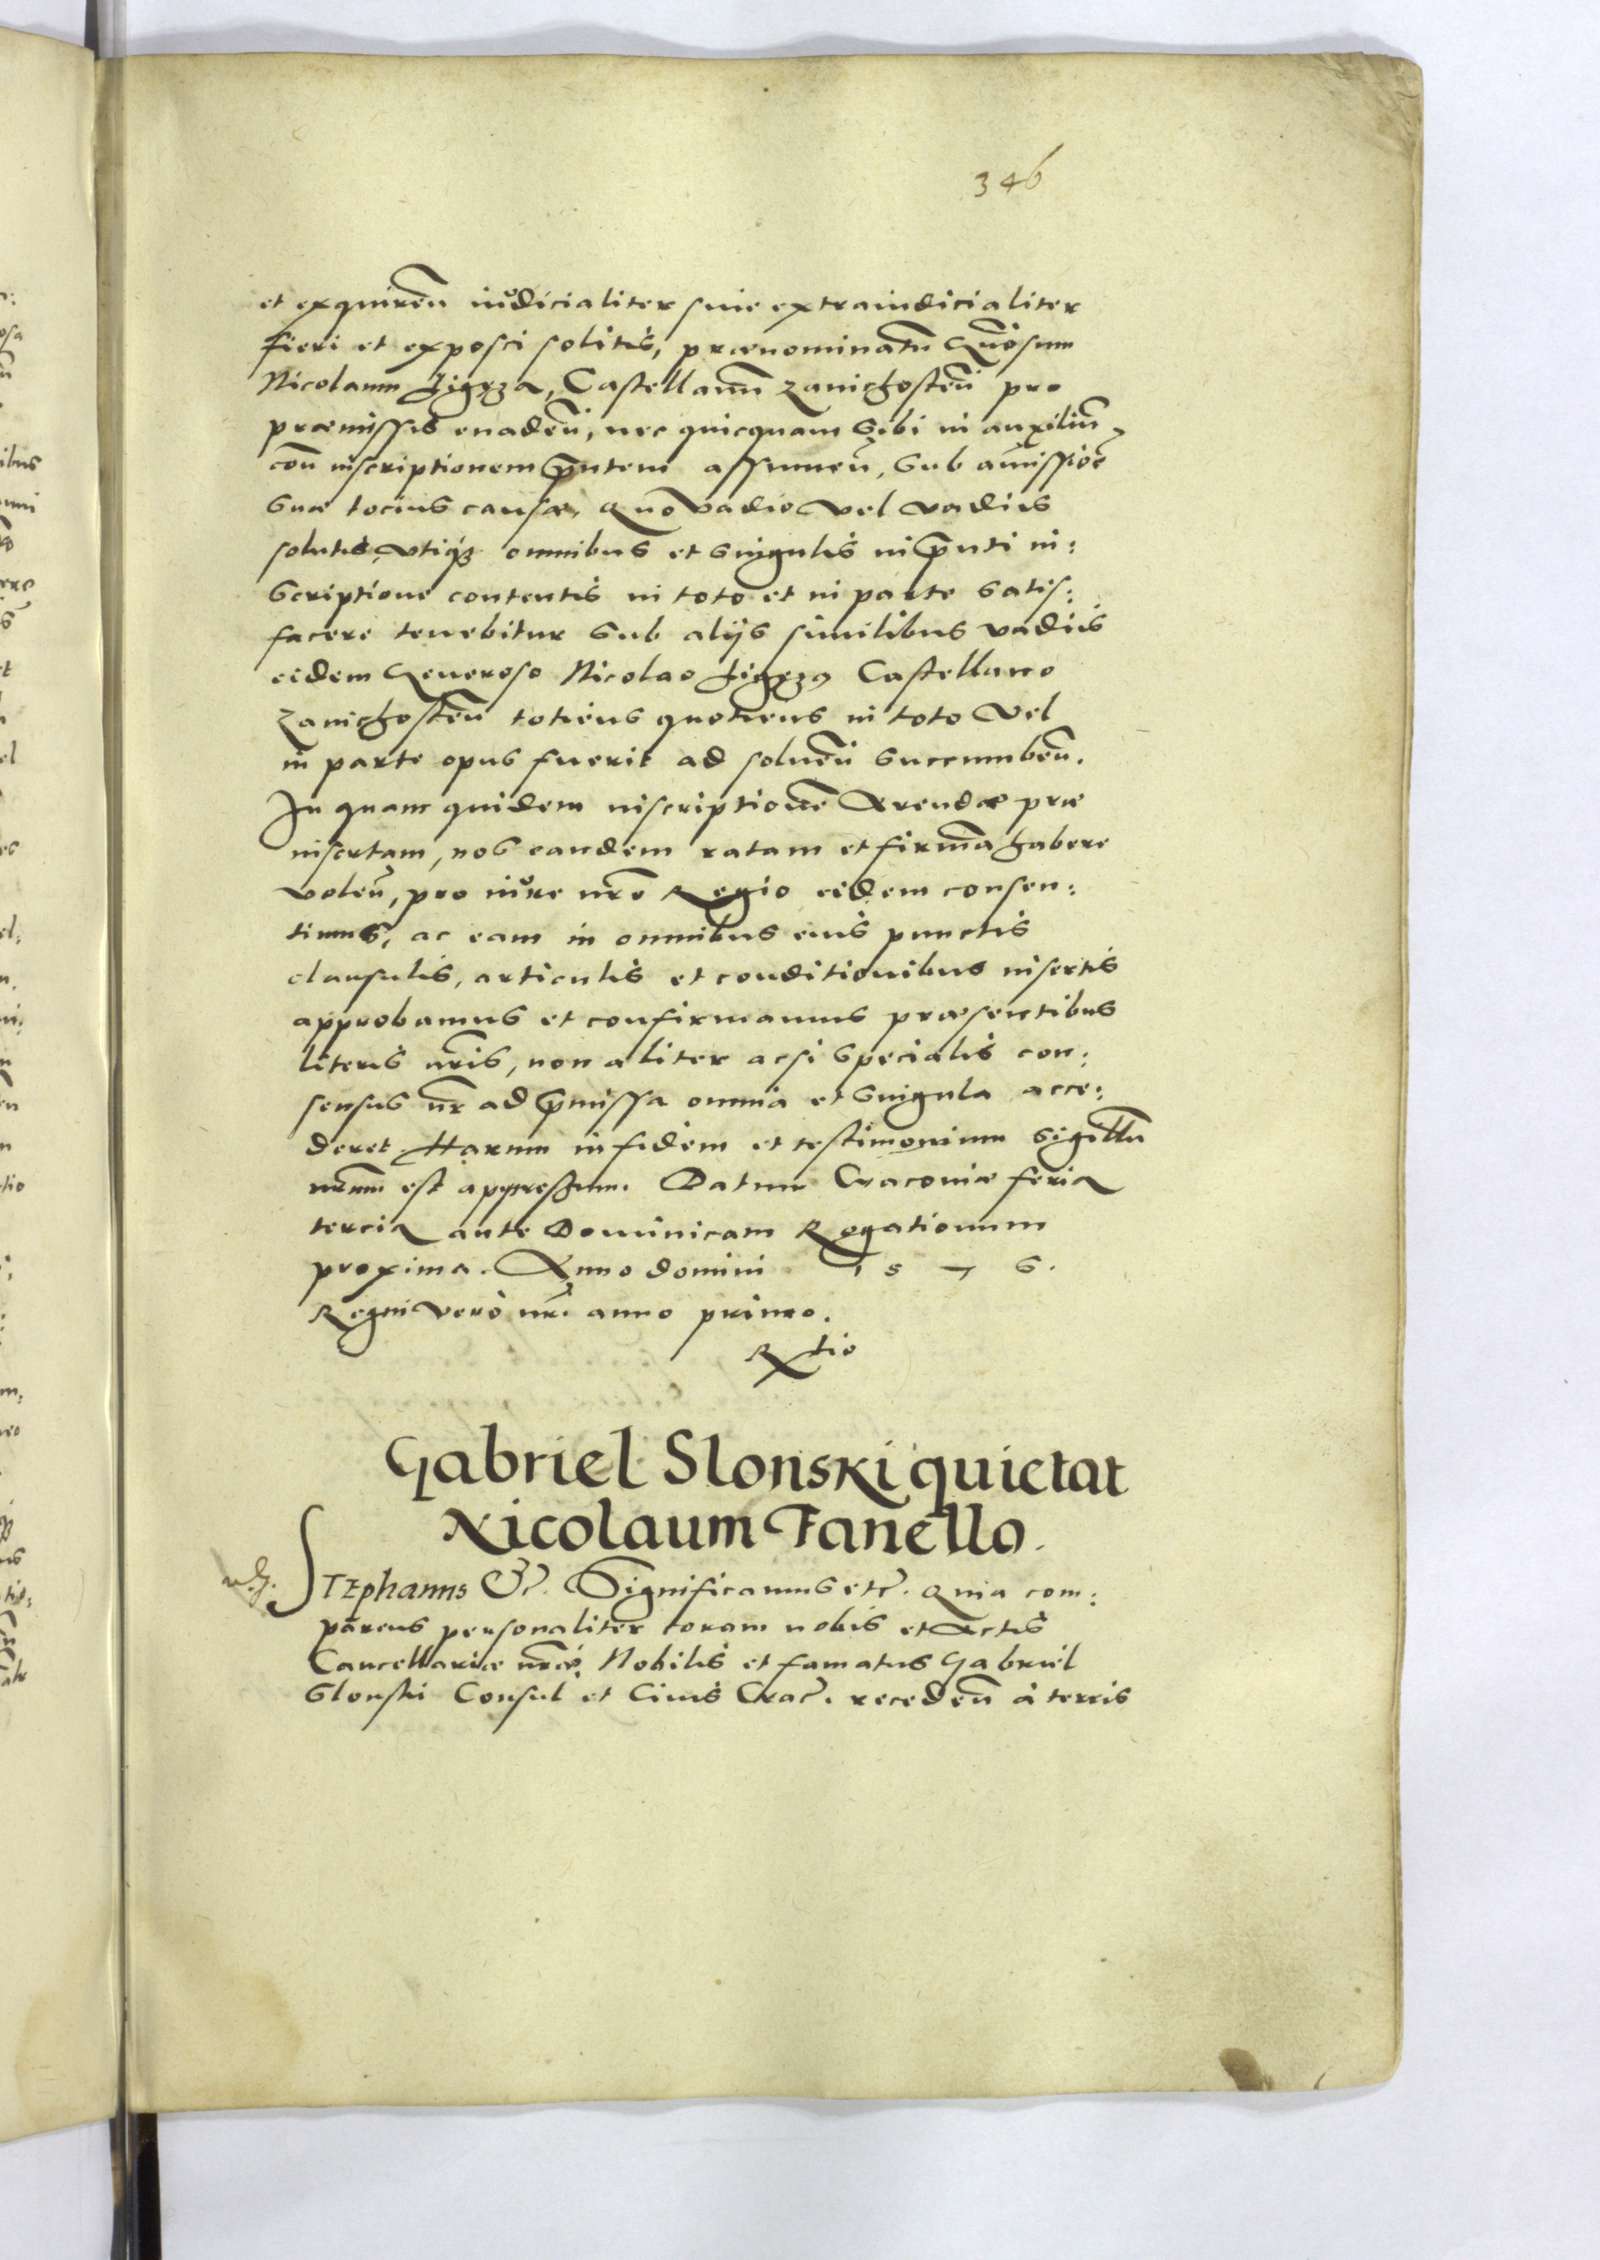 346
et exquiren̄ iudicialiter siue extraiudicialiter
fieri et exposci solitis, prænominatū Gn̄osum
Nicolaum Ligęza, Castellanū Zawichosten̄ pro
præmissis euaden̄, nec quicquam sibi in auxiliū,
con̄ inscriptionem p̄ntem assumen̄, sub amissiōē
suæ tocius causæ, Quo vadio vel vadiis
solutis, vtiqȝ omnibus et singulis in p̄nti in:
scriptione contentis in toto et in parte satis:
facere tenebitur sub alijs similibus vadiis
eidem Generoso Nicolao Ligęza Castellano
Zawichosten̄ totiens quotiens in toto vel
in parte opus fuerit ad soluen̄ succumben̄.
In quam quidem inscriptionē Arendæ præ
insertam, nos eandem ratam et firmā habere
volen̄, pro iure nr̄o Regio eidem consen:
timus, ac eam in omnibus eius punctis
clausulis, articulis et conditionibus insertis
approbamus et confirmamus præsentibus
literis nr̄is, non aliter acsi specialis con:
sensus nr̄ ad p̄missa omnia et singula acce:
deret. Harum in fidem et testimonium sigillū
nr̄um est appressum. Datum Cracoviæ feria
tercia ante Dominicam Rogationum
proxima. Anno domini 1576.
Regni vero nr̄i anno primo.
Rtio
Gabriel Slonski quietat
Nicolaum Fanello.
Stephanus &c̄. Significamus etc̄. Quia com:
parens personaliter coram nobis et Actis
Cancellariæ nr̄æ, Nobilis et famatus Gabriel
Slonski Consul et Ciuis Crac̄. receden̄ à terris